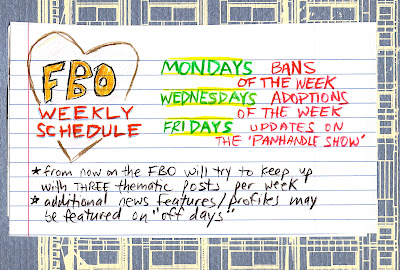 FBO
WEEKLY
SCHEDULE
MONDAYS BANS
OF THE WEEK
WEDNESDAYS ADOPTIONS
OF THE WEEK
FRIDAYS UPDATES ON
THE "PANHANDLE SHOW"
★ from now on the FBO will try to keep up
with THREE thematic posts per week
★ additional news features/profiles may
be featured on "off days"